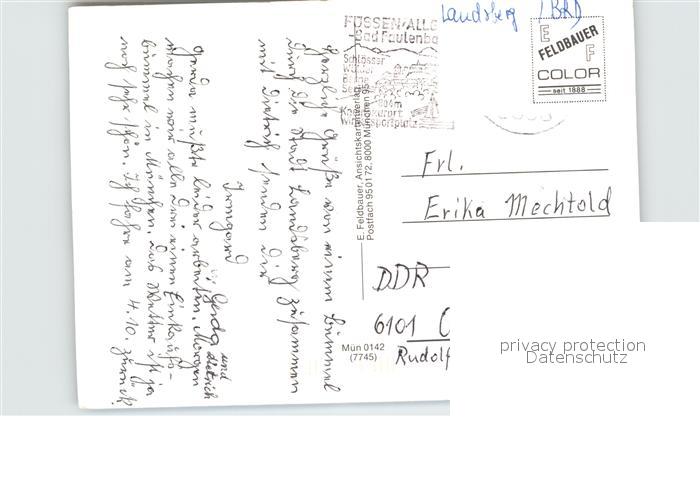 Landsberg (BRD)
FÜSSEN/ALLG
-Bad Faulenba
Schlösser
Kneippkurort
Wintersportplatz
E FELDBAUER F
COLOR
seit 1888
Herzliche Grüße von einem Bummel
durch die Stadt Landsberg zusammen
mit Dietrich senden dir
Irmgard
und
Gerda Dietrich
Gerda müßte leider arbeiten. Morgen
machen wir alle drei einen Einkaufs-
bummel in München. Das Wetter ist ja
auch sehr schön. Ich fahre am 4.10. zurück
E. Feldbauer, Ansichtskartenverlag,
Postfach 950172, 8000 München 95
Frl.
Erika Mechtold
DDR
6101
Rudolf
Mün 0142
(7745)
privacy protection
Datenschutz